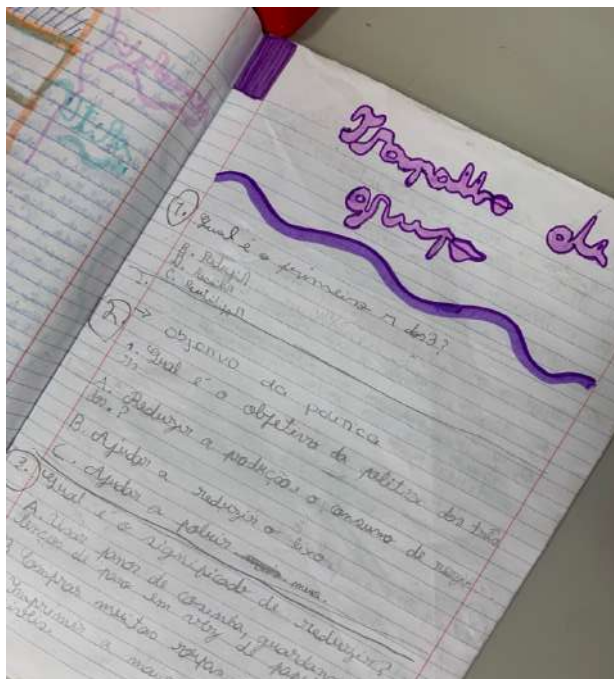 Trapalho da
grupo
1. Qual é o primeiro r dos 3?
C.
2. → Objetivo da política
1. Qual é o objetivo da política dos três
A. Reduzir a produção o consumo de
B. Ajudar a reduzir o lixo
C. Ajudar a poluir mais.
3. Qual é o significado de reduzir?
A. Usar panos de cozinha, guardan
de pano em vez de pap
Comprar muitas roupas
Imprimir a ma